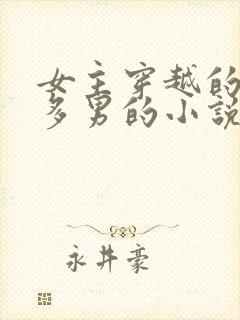 女主穿越的
多男的小说
永井豪